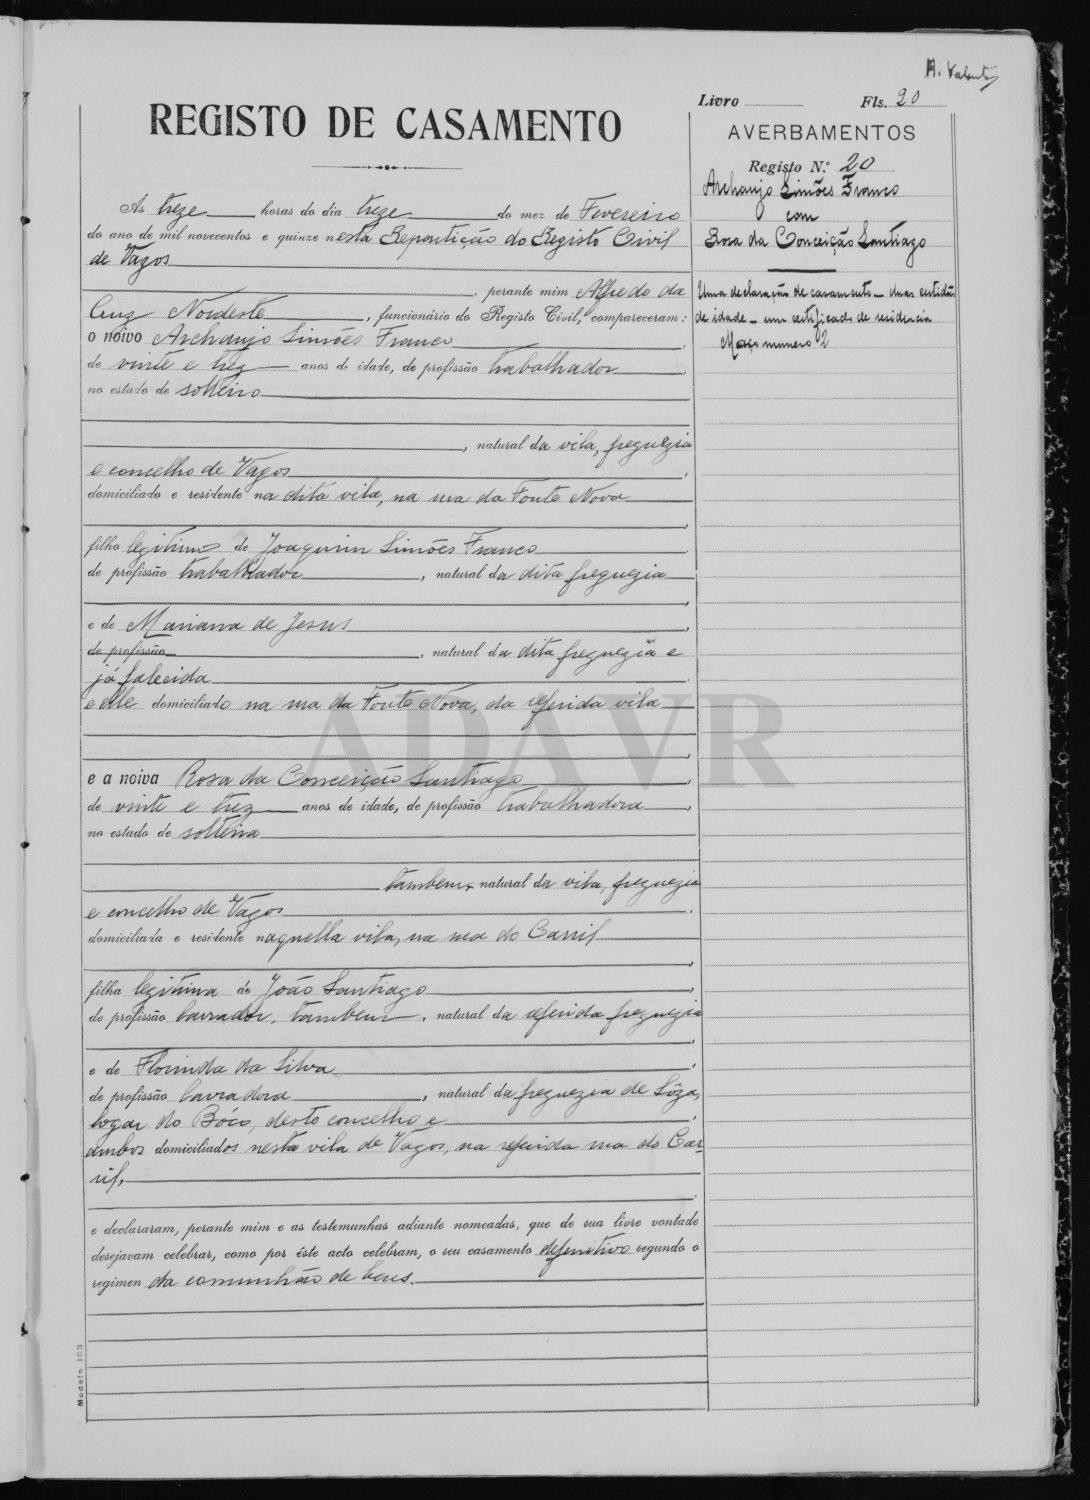 A. Valente
Livro Fls. 20
REGISTO DE CASAMENTO
AVERBAMENTOS
Registo N.º 20
Archanjo Simões Franco
com
Rosa da Conceição Santiago
Uma declaração de casamento – duas certidões
de idade – um certificado de residencia
Maço numero 2
Às treze horas do dia treze do mez de Fevereiro
do ano de mil novecentos e quinze nesta Repartição do Registo Civil
de Vagos
, perante mim Alfredo da
Cruz Nordeste, funcionário do Registo Civil, compareceram:
o noivo Archanjo Simões Franco,
de vinte e trez anos de idade, de profissão trabalhador,
no estado de solteiro
, natural da vila, freguezia
e concelho de Vagos,
domiciliado e residente na dita vila, na rua da Fonte Nova
,
filho legitimo de Joaquim Simões Franco
de profissão trabalhador, natural da dita freguezia
,
e de Mariana de Jesus,
de profissão, natural da dita freguezia e
já falecida
e elle domiciliado na rua da Fonte Nova, da referida vila
,
e a noiva Rosa da Conceição Santiago,
de vinte e trez anos de idade, de profissão trabalhadora,
no estado de solteira
tambem, natural da vila, freguezia
e concelho de Vagos,
domiciliada e residente naquella vila, na rua do Carril
,
filha legitima de João Santiago,
de profissão lavrador, tambem, natural da referida freguezia
,
e de Florinda da Silva,
de profissão lavradora, natural da freguezia de Sôza,
logar do Bôco, deste concelho e,
ambos domiciliados nesta vila de Vagos, na referida rua do Car-
ril,
e declararam, perante mim e as testemunhas adiante nomeadas, que de sua livre vontade
desejavam celebrar, como por êste acto celebram, o seu casamento defenitivo segundo o
regimen da comunhão de bens.
Modelo 103
ADAVR